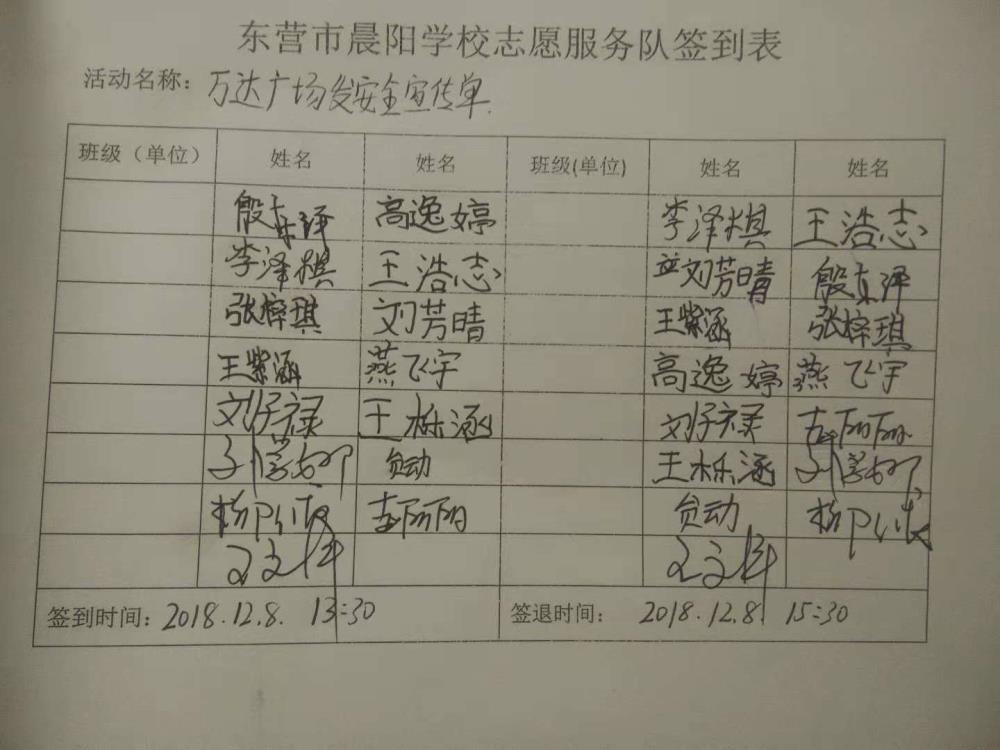 东营市晨阳学校志愿服务队签到表
活动名称：万达广场发安全宣传单.
班级（单位） 姓名 姓名 班级(单位) 姓名 姓名
殷东泽 高逸婷 李泽棋 王浩志
李泽棋 王浩志 刘芳晴 殷东泽
张梓琪 刘芳晴 王紫涵 张梓琪
王紫涵 燕飞宇 高逸婷 燕飞宇
刘子禄 王栎涵 刘子禄
负动 王栎涵
负动
签到时间：2018.12.8. 13:30 签退时间： 2018.12.8. 15:30